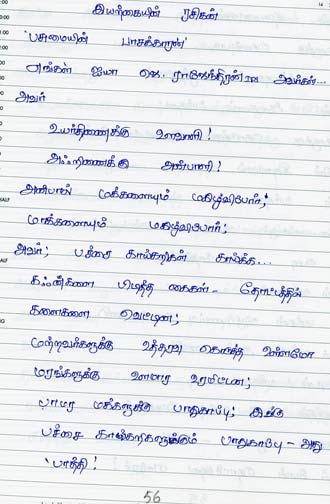 இயற்கையின் ரசிகன்
'பசுமையின் பாசக்காரன்'
எங்கள் ஐயா வெ. ராஜேந்திரன் IPS அவர்கள்...
அவர்
உயர்திணைக்கு உளவாளி!
அஃறிணைக்கு அன்பாளி!
அன்பால் மக்களையும் மகிழ்விப்போர்;
மாக்களையும் மகிழ்விபோர்;
அவர்; பச்சை காய்கறிகள் காய்க்க...
கஃன்களை பிடித்த கைகள் - தோட்டத்தில்
களைகளை வெட்டின;
மற்றவர்களுக்கு உத்தரவு கொடுத்த உள்ளமோ
மரங்களுக்கு உளமார உரமிட்டன;
பாமர மக்களுக்கு பாதுகாப்பு; இங்கு
பச்சை காய்கறிகளுக்கும் பாதுகாப்பு - அது
'பாத்தி'!
56